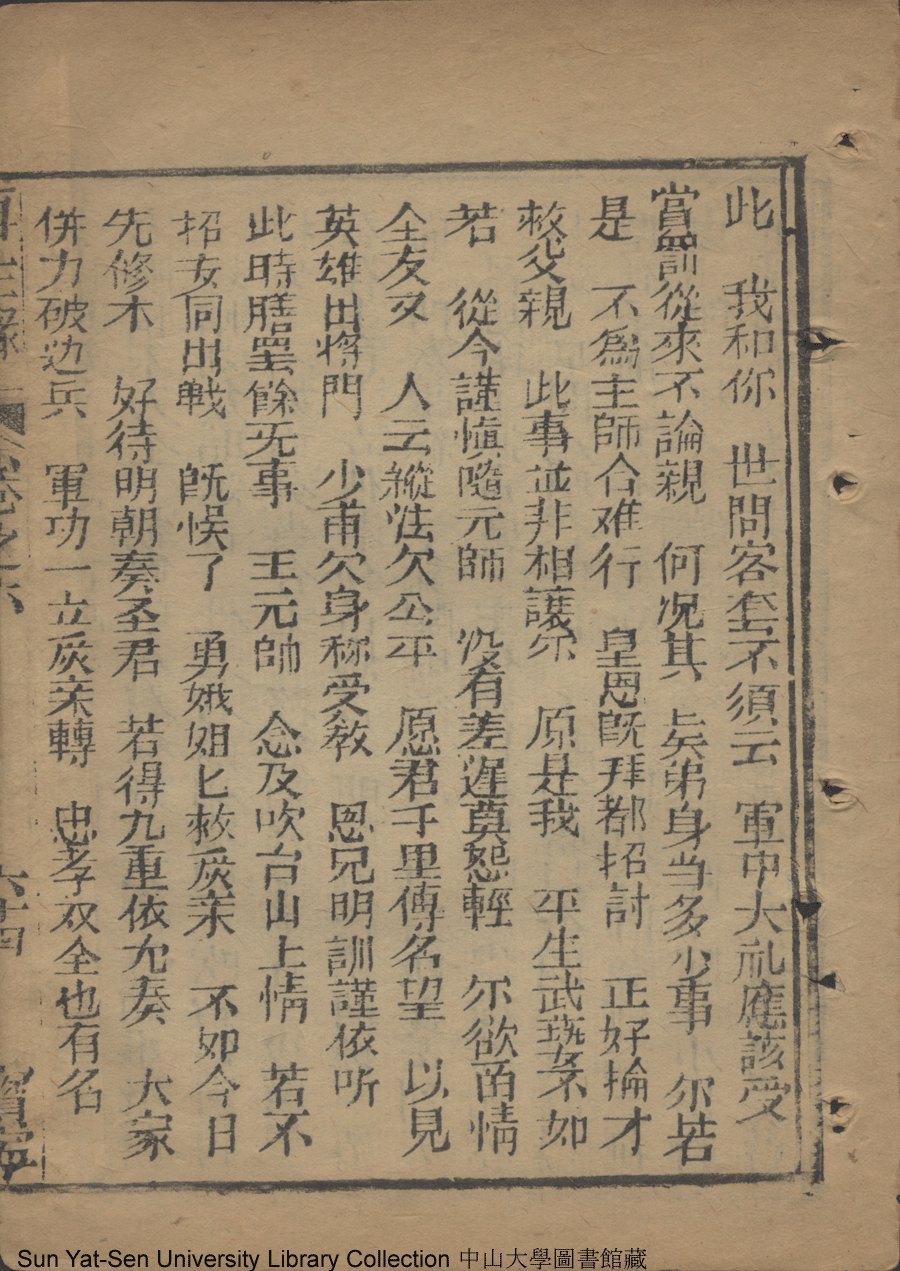 此　我和你　世問客套不須云　軍中大礼應該受
賞罰從來不論親　何况其　矣弟身当多少事　尔若
是　不為主師合难行　皇恩旣拜都招討　正好掄才
救父親　此事並非相讓尔　原是我　平生武藝不如
若　從今謹慎隨元師　没有差遲莫怨輕　尔欲面情
全友又　人云縱法欠公平　愿君千里傳名望　以見
英雄出將門　少甫欠身称受教　恩兄明訓謹依听
此時膳罷餘无事　王元帥　念及吹台山上情　若不
招女同出戰　旣悞了　勇娥姐匕救灰亲　不如今日
先修木　好待明朝奏圣君　若得九重依允奏　大家
併力破边兵　軍功一立灰亲轉　忠孝双全也有名
卷之六　六十四
Sun Yat-Sen University Library Collection 中山大學圖書館藏